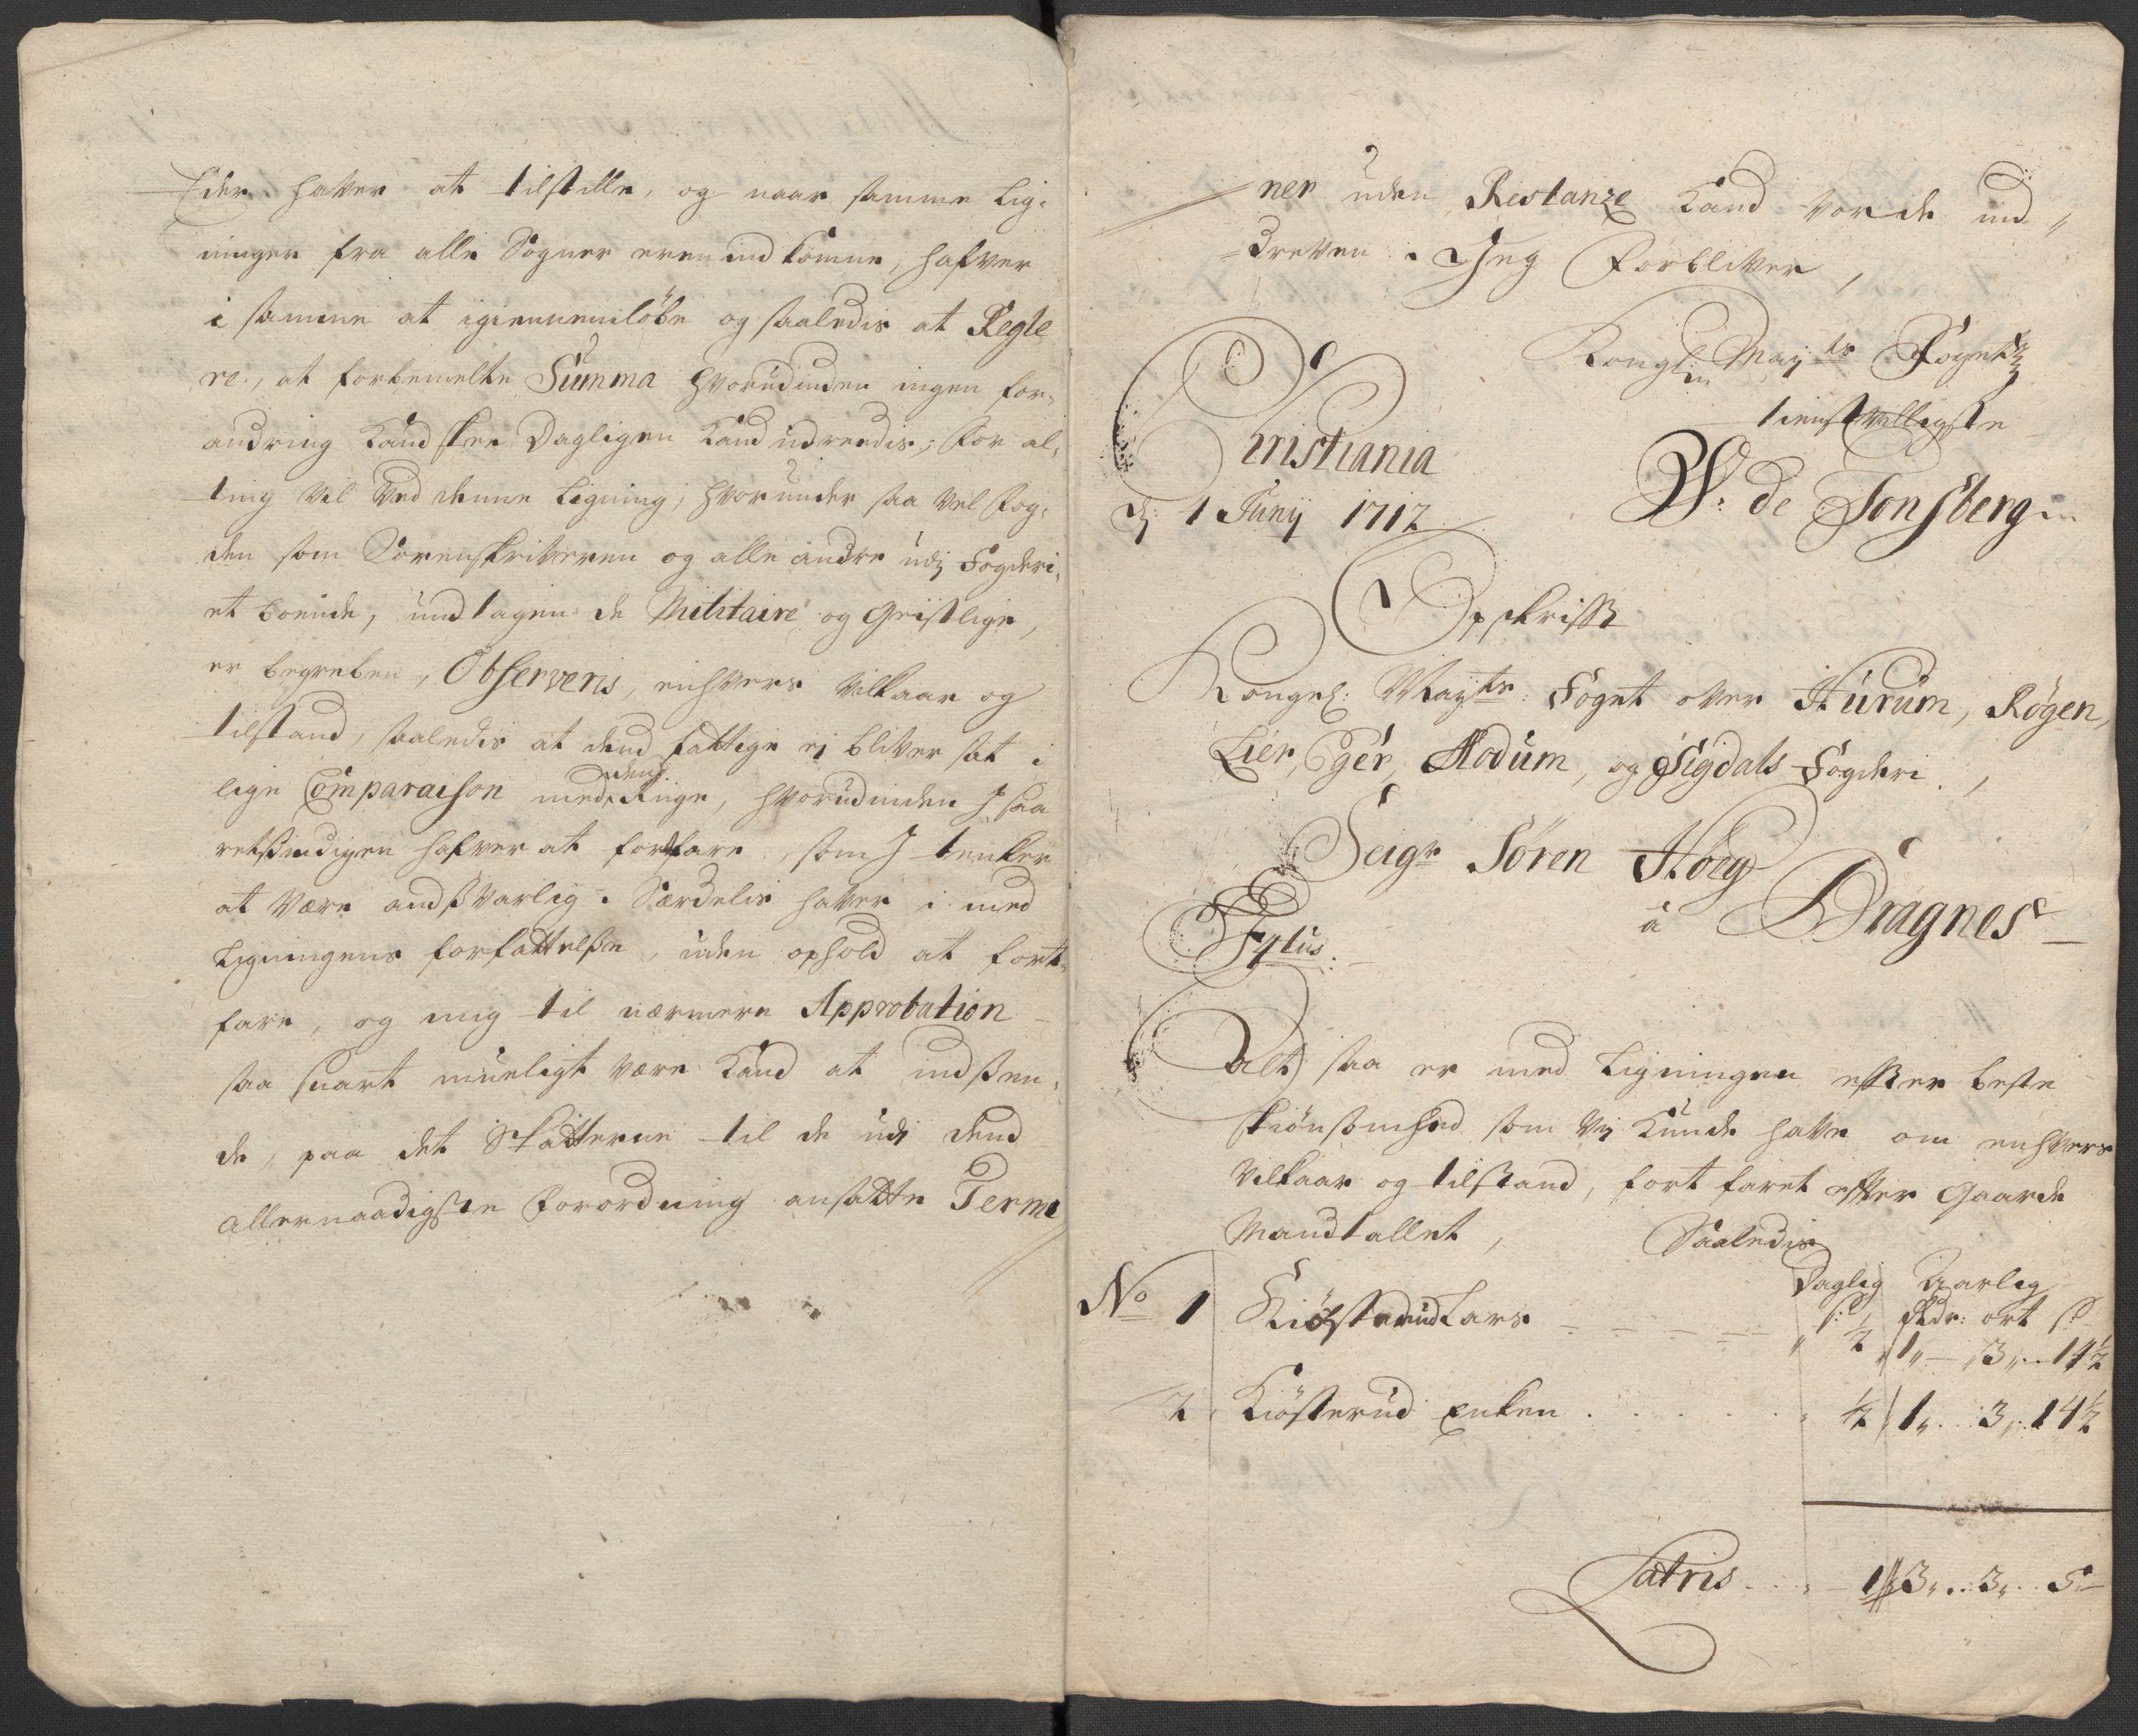 Eder haver at tilstille, og naar samme Lig-
ninger fra alle Sogner ere ind komne, hafver
i samme at igiennemløbe og saaledis at Regle
re, at forbemelte Summa hvorudinden ingen for-
andring kand skee Dagligen kand udreedis; For al-
ting vil ved denne Ligning, hvorunder saa vel Fog-
den som Sorenskriveren og alle andre udj Fogderi-
et boende, undtagen de Militaire og Geistlige,
er begreben, Observeris, enhvers vilkaar og
tilstand, saaledis at dend fattige ej bliver sat i
lige Comparaison med dend Riige, hvorudinden I saa
retsindigen hafver at forfare, som I tenker
at være andsvarlig. Særdelis haver i med
Ligningens forfattelse, uden ophold at fort-
fare, og mig til nærmere Approbation
saa snart mueligt være kand at indsen-
de, paa det Skatterne til de udj dend
allernaadigste Forordning ansatte Termi
ner uden Restanze kand vorde ind-
dreven. Jeg Forbliver,
Kongl: Mayts Fogetz
tienstvilligste
Christiania W: de Tonsberg
d: 1 Junij 1712
Opskrifft
Kongel: Mayts: Foget over Hurum, Røgen,
Lier, Eger, Modum, og Sigdals Fogderi,
Seigr Søren Høeg
à Dragnes
Tytlus:
Alt saa er med Ligningen efter beste
skiønsomhed som vij kunde have om enhvers
vilkaar og tilstand, fort faret efter Gaarde
Mandtallet, Saaledis
Daglig Aarlig
s: Rdr: ort s
No 1 Kiøsterud Lars ½ 1 3 14½
2 Kiøsterud Enken ½ 1 3 14½
Latris 1 3 3 5